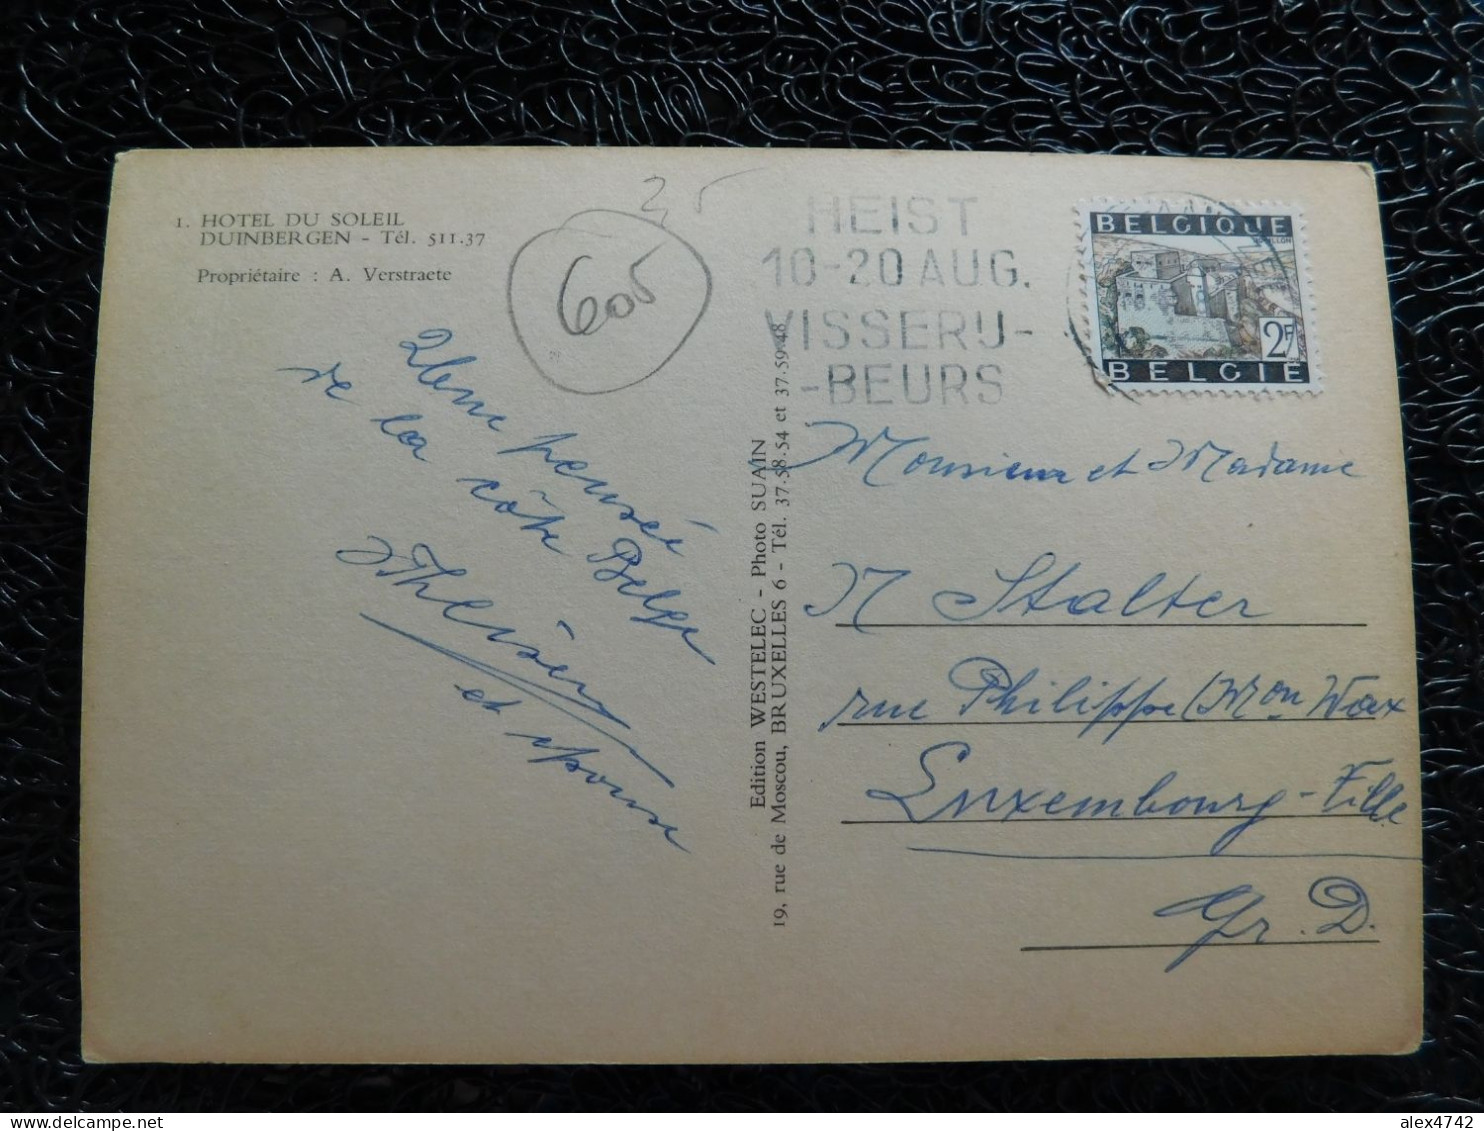 1. HOTEL DU SOLEIL
DUINBERGEN - Tél. 511.37
Propriétaire : A. Verstraete
25
605
HEIST
10-20 AUG.
VISSERIJ-
-BEURS
BELGIQUE
2F
BELGIË
2ème pensée
de la côte Belge
et épouse
Edition WESTELEC - Photo SUAIN
19, rue de Moscou, BRUXELLES 6 - Tél. 37.58.54 et 37.59.48
Monsieur et Madame
N Stalter
rue Philippe
Luxembourg-Ville
Gr. D.
alex4742